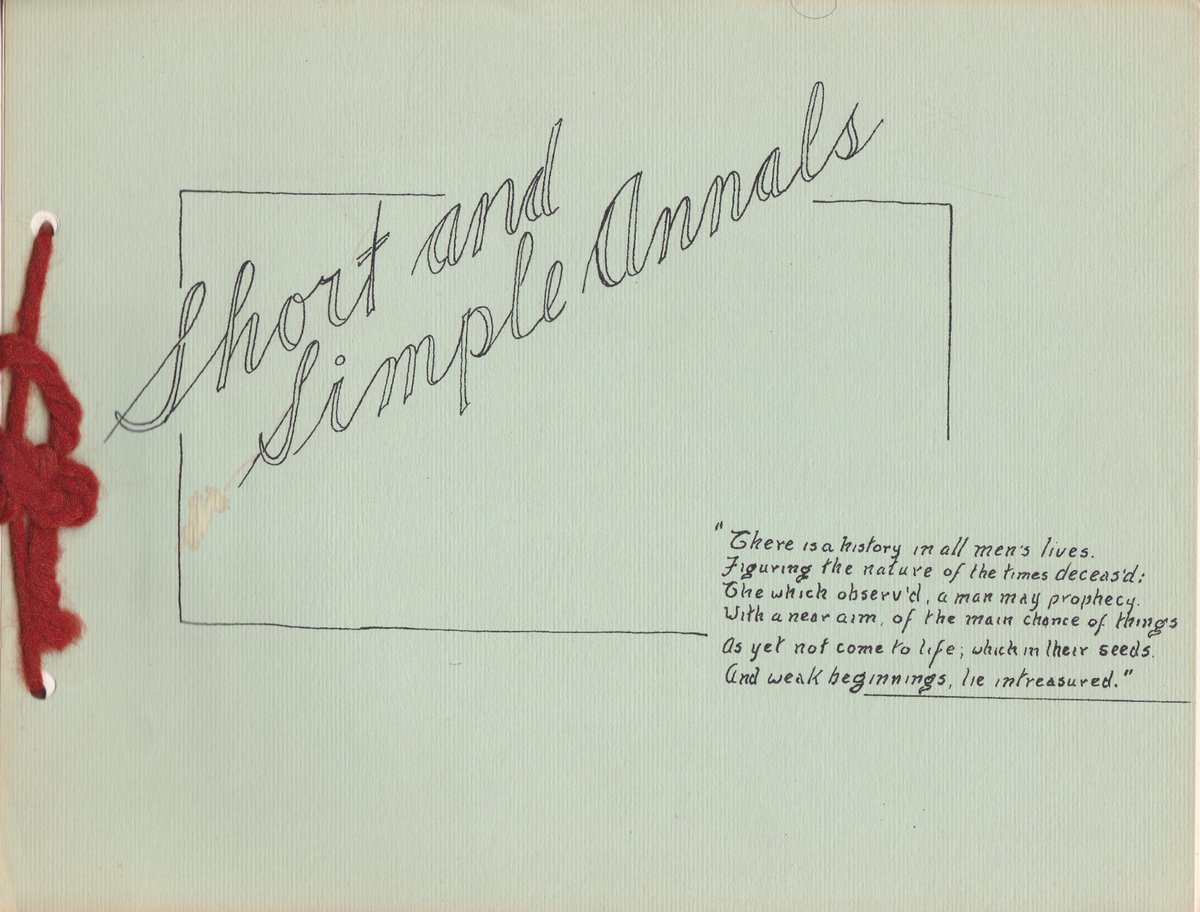 Short and
Simple Annals
"There is a history in all men's lives.
Figuring the nature of the times deceas'd;
The which observ'd, a man may prophecy.
With a near aim, of the main chance of things
As yet not come to life; which in their seeds.
And weak beginnings, lie intreasured."